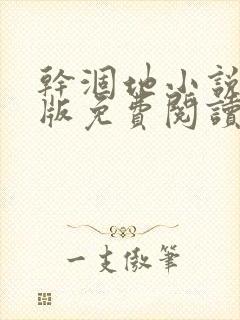 幹涸地小説
版免費閱讀
一支傲筆